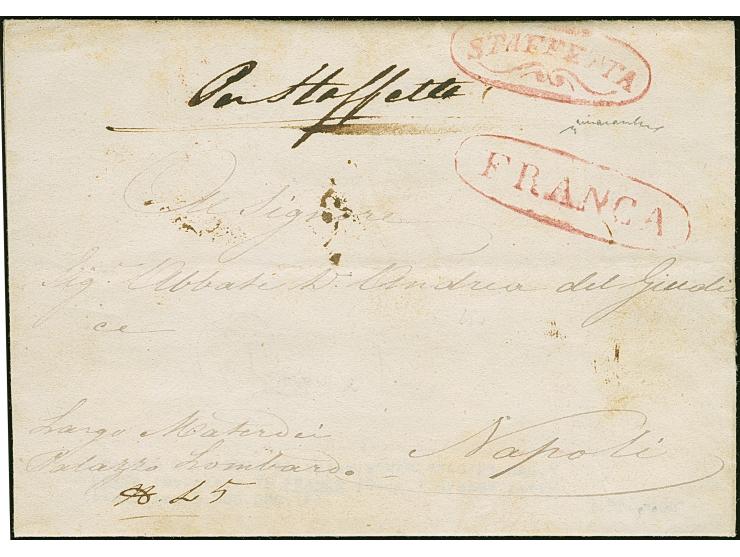 STAFFETTA
Per Staffetta
FRANCA
Al Signore
Sig.r Abbate D. Andrea del Giudi
ce
Largo Materdei
Palazzo Lombardo
Napoli
N. 45